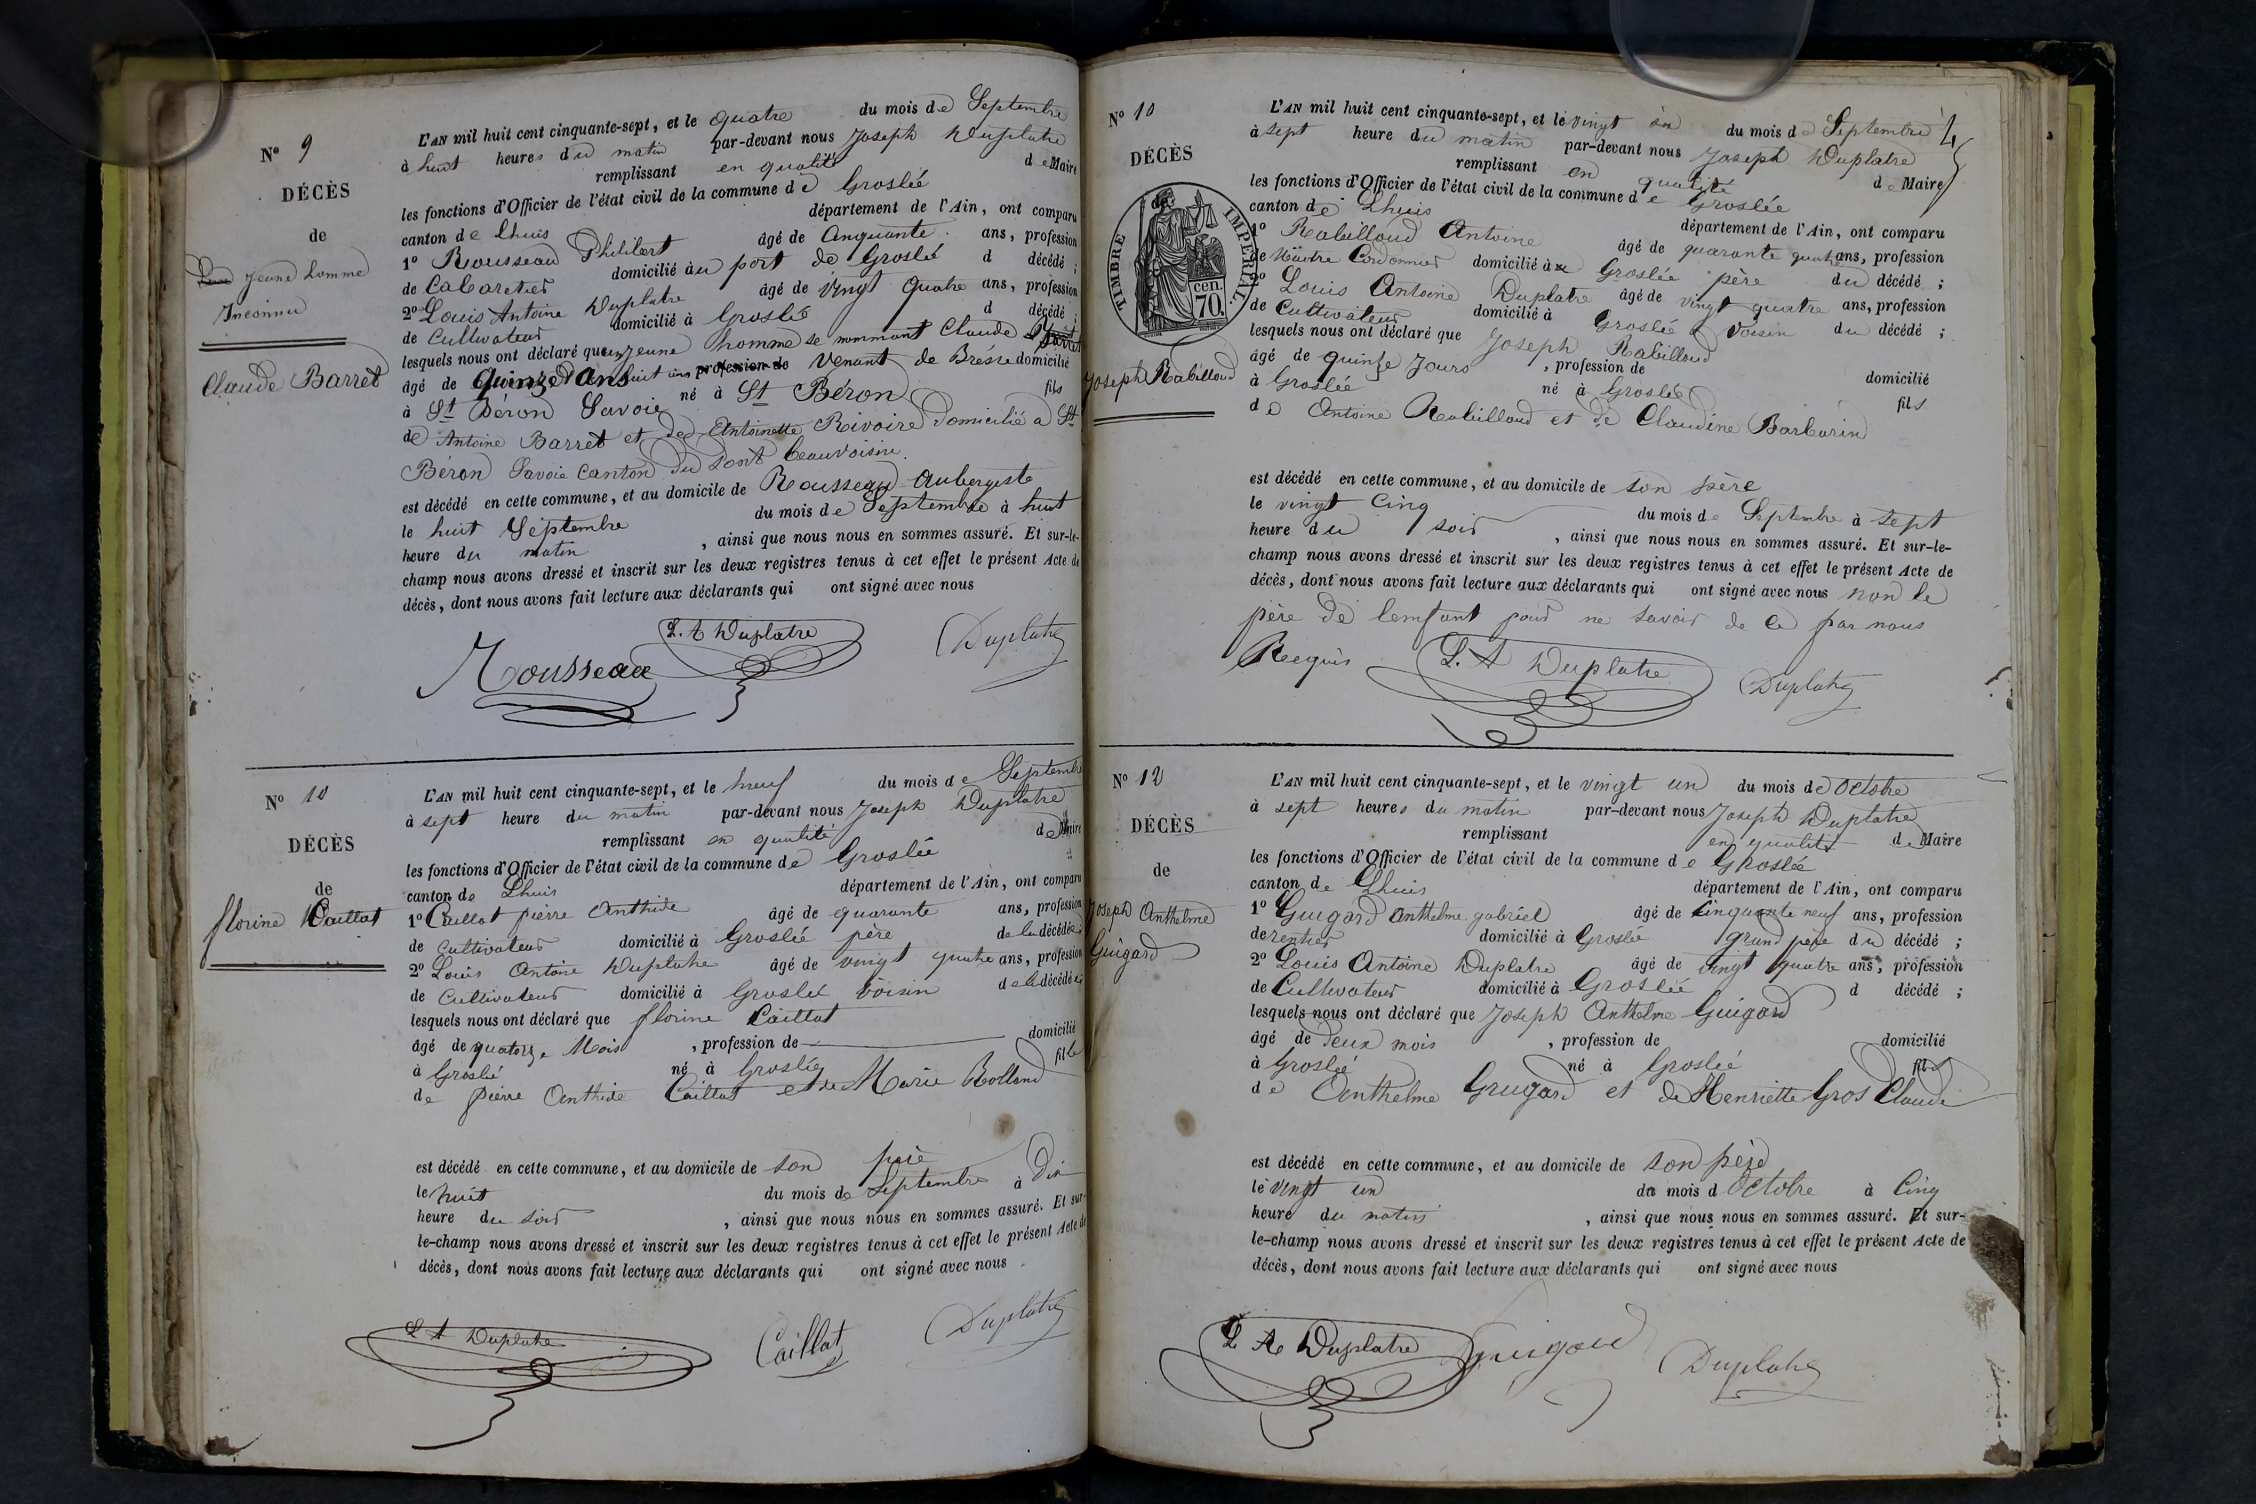 N° 9
DÉCÈS
de
jeune homme
Inconnu
Claude Barret
L'AN mil huit cent cinquante-sept, et le quatre du mois de Septembre
à huit heures du matin par-devant nous Joseph Duplatre
remplissant en qualité de Maire
les fonctions d'Officier de l'état civil de la commune de Groslée
canton de Lhuis département de l'Ain, ont comparu
1° Rousseau Philibert âgé de Cinquante ans, profession
de Cabaretier domicilié au port de Groslé d décédé ;
2° Louis Antoine Duplatre âgé de vingt quatre ans, profession
de Cultivateur domicilié à Groslée d décédé ;
lesquels nous ont déclaré qu'un jeune homme se nommant Claude
âgé de quinze ans profession de venant de domicilié
à St Béron Savoie né à St Béron fils
de Antoine Barret et de Antoinette Rivoire domicilié a St
Béron Savoie canton du pont beauvoisin
est décédé en cette commune, et au domicile de Rousseau Aubergiste
le huit Septembre du mois de Septembre à huit
heure du matin , ainsi que nous nous en sommes assuré. Et sur-le-
champ nous avons dressé et inscrit sur les deux registres tenus à cet effet le présent Acte de
décès, dont nous avons fait lecture aux déclarants qui ont signé avec nous
L. A Duplatre
Duplatre
Rousseau
N° 10
DÉCÈS
de
florine Caillat
L'AN mil huit cent cinquante-sept, et le neuf du mois de Septembre
à sept heure du matin par-devant nous Joseph Duplatre
remplissant en qualité de Maire
les fonctions d'Officier de l'état civil de la commune de Groslée
canton de Lhuis département de l'Ain, ont comparu
1° Caillat pierre Anthide âgé de quarante ans, profession
de Cultivateur domicilié à Groslée père de la décédée
2° Louis Antoine Duplatre âgé de vingt quatre ans, profession
de Cultivateur domicilié à Groslée voisin de la décédée
lesquels nous ont déclaré que florine Caillat
âgé de quatorze Mois , profession de domicilié
à Groslée né à Groslée fille
de pierre Anthide Caillat et de Marie Rolland
est décédé en cette commune, et au domicile de son père
le huit du mois de Septembre à dix
heure du soir , ainsi que nous nous en sommes assuré. Et sur-
le-champ nous avons dressé et inscrit sur les deux registres tenus à cet effet le présent Acte de
décès, dont nous avons fait lecture aux déclarants qui ont signé avec nous
L A Duplatre
Caillat
Duplatre
N° 10
DÉCÈS
TIMBRE IMPERIAL.
cen.
70.
Joseph Rabilloud
L'AN mil huit cent cinquante-sept, et le vingt six du mois de Septembre
à sept heure du matin par-devant nous Joseph Duplatre
remplissant en qualité de Maire
les fonctions d'Officier de l'état civil de la commune de Groslée
canton de Lhuis département de l'Ain, ont comparu
1° Rabilloud Antoine âgé de quarante quatre ans, profession
de Maitre Cordonnier domicilié à Groslée père du décédé ;
2° Louis Antoine Duplatre âgé de vingt quatre ans, profession
de Cultivateur domicilié à Groslée voisin du décédé ;
lesquels nous ont déclaré que Joseph Rabilloud
âgé de quinze Jours , profession de domicilié
à Groslée né à Groslée fils
de Antoine Rabilloud et de Claudine Barbarin
est décédé en cette commune, et au domicile de son père
le vingt Cinq du mois de Septembre à sept
heure du soir , ainsi que nous nous en sommes assuré. Et sur-le-
champ nous avons dressé et inscrit sur les deux registres tenus à cet effet le présent Acte de
décès, dont nous avons fait lecture aux déclarants qui ont signé avec nous non le
père de lenfant pour ne savoir de ce par nous
Requis
L. A Duplatre
Duplatre
N° 12
DÉCÈS
de
Joseph Anthelme
Guigard
L'AN mil huit cent cinquante-sept, et le vingt un du mois de Octobre
à sept heures du matin par-devant nous Joseph Duplatre
remplissant en qualité de Maire
les fonctions d'Officier de l'état civil de la commune de Groslée
canton de Lhuis département de l'Ain, ont comparu
1° Guigard Anthelme gabriel âgé de Cinquante neuf ans, profession
de rentier domicilié à Groslée grand père du décédé ;
2° Louis Antoine Duplatre âgé de vingt quatre ans, profession
de Cultivateur domicilié à Groslée d décédé ;
lesquels nous ont déclaré que Joseph Anthelme Guigard
âgé de deux mois , profession de domicilié
à Groslée né à Groslée fils
de Anthelme Guigard et de Henriette Gros Claude
est décédé en cette commune, et au domicile de son père
le vingt un du mois d Octobre à Cinq
heure du matin , ainsi que nous nous en sommes assuré. Et sur-
le-champ nous avons dressé et inscrit sur les deux registres tenus à cet effet le présent Acte de
décès, dont nous avons fait lecture aux déclarants qui ont signé avec nous
L A Duplatre
Guigard
Duplatre